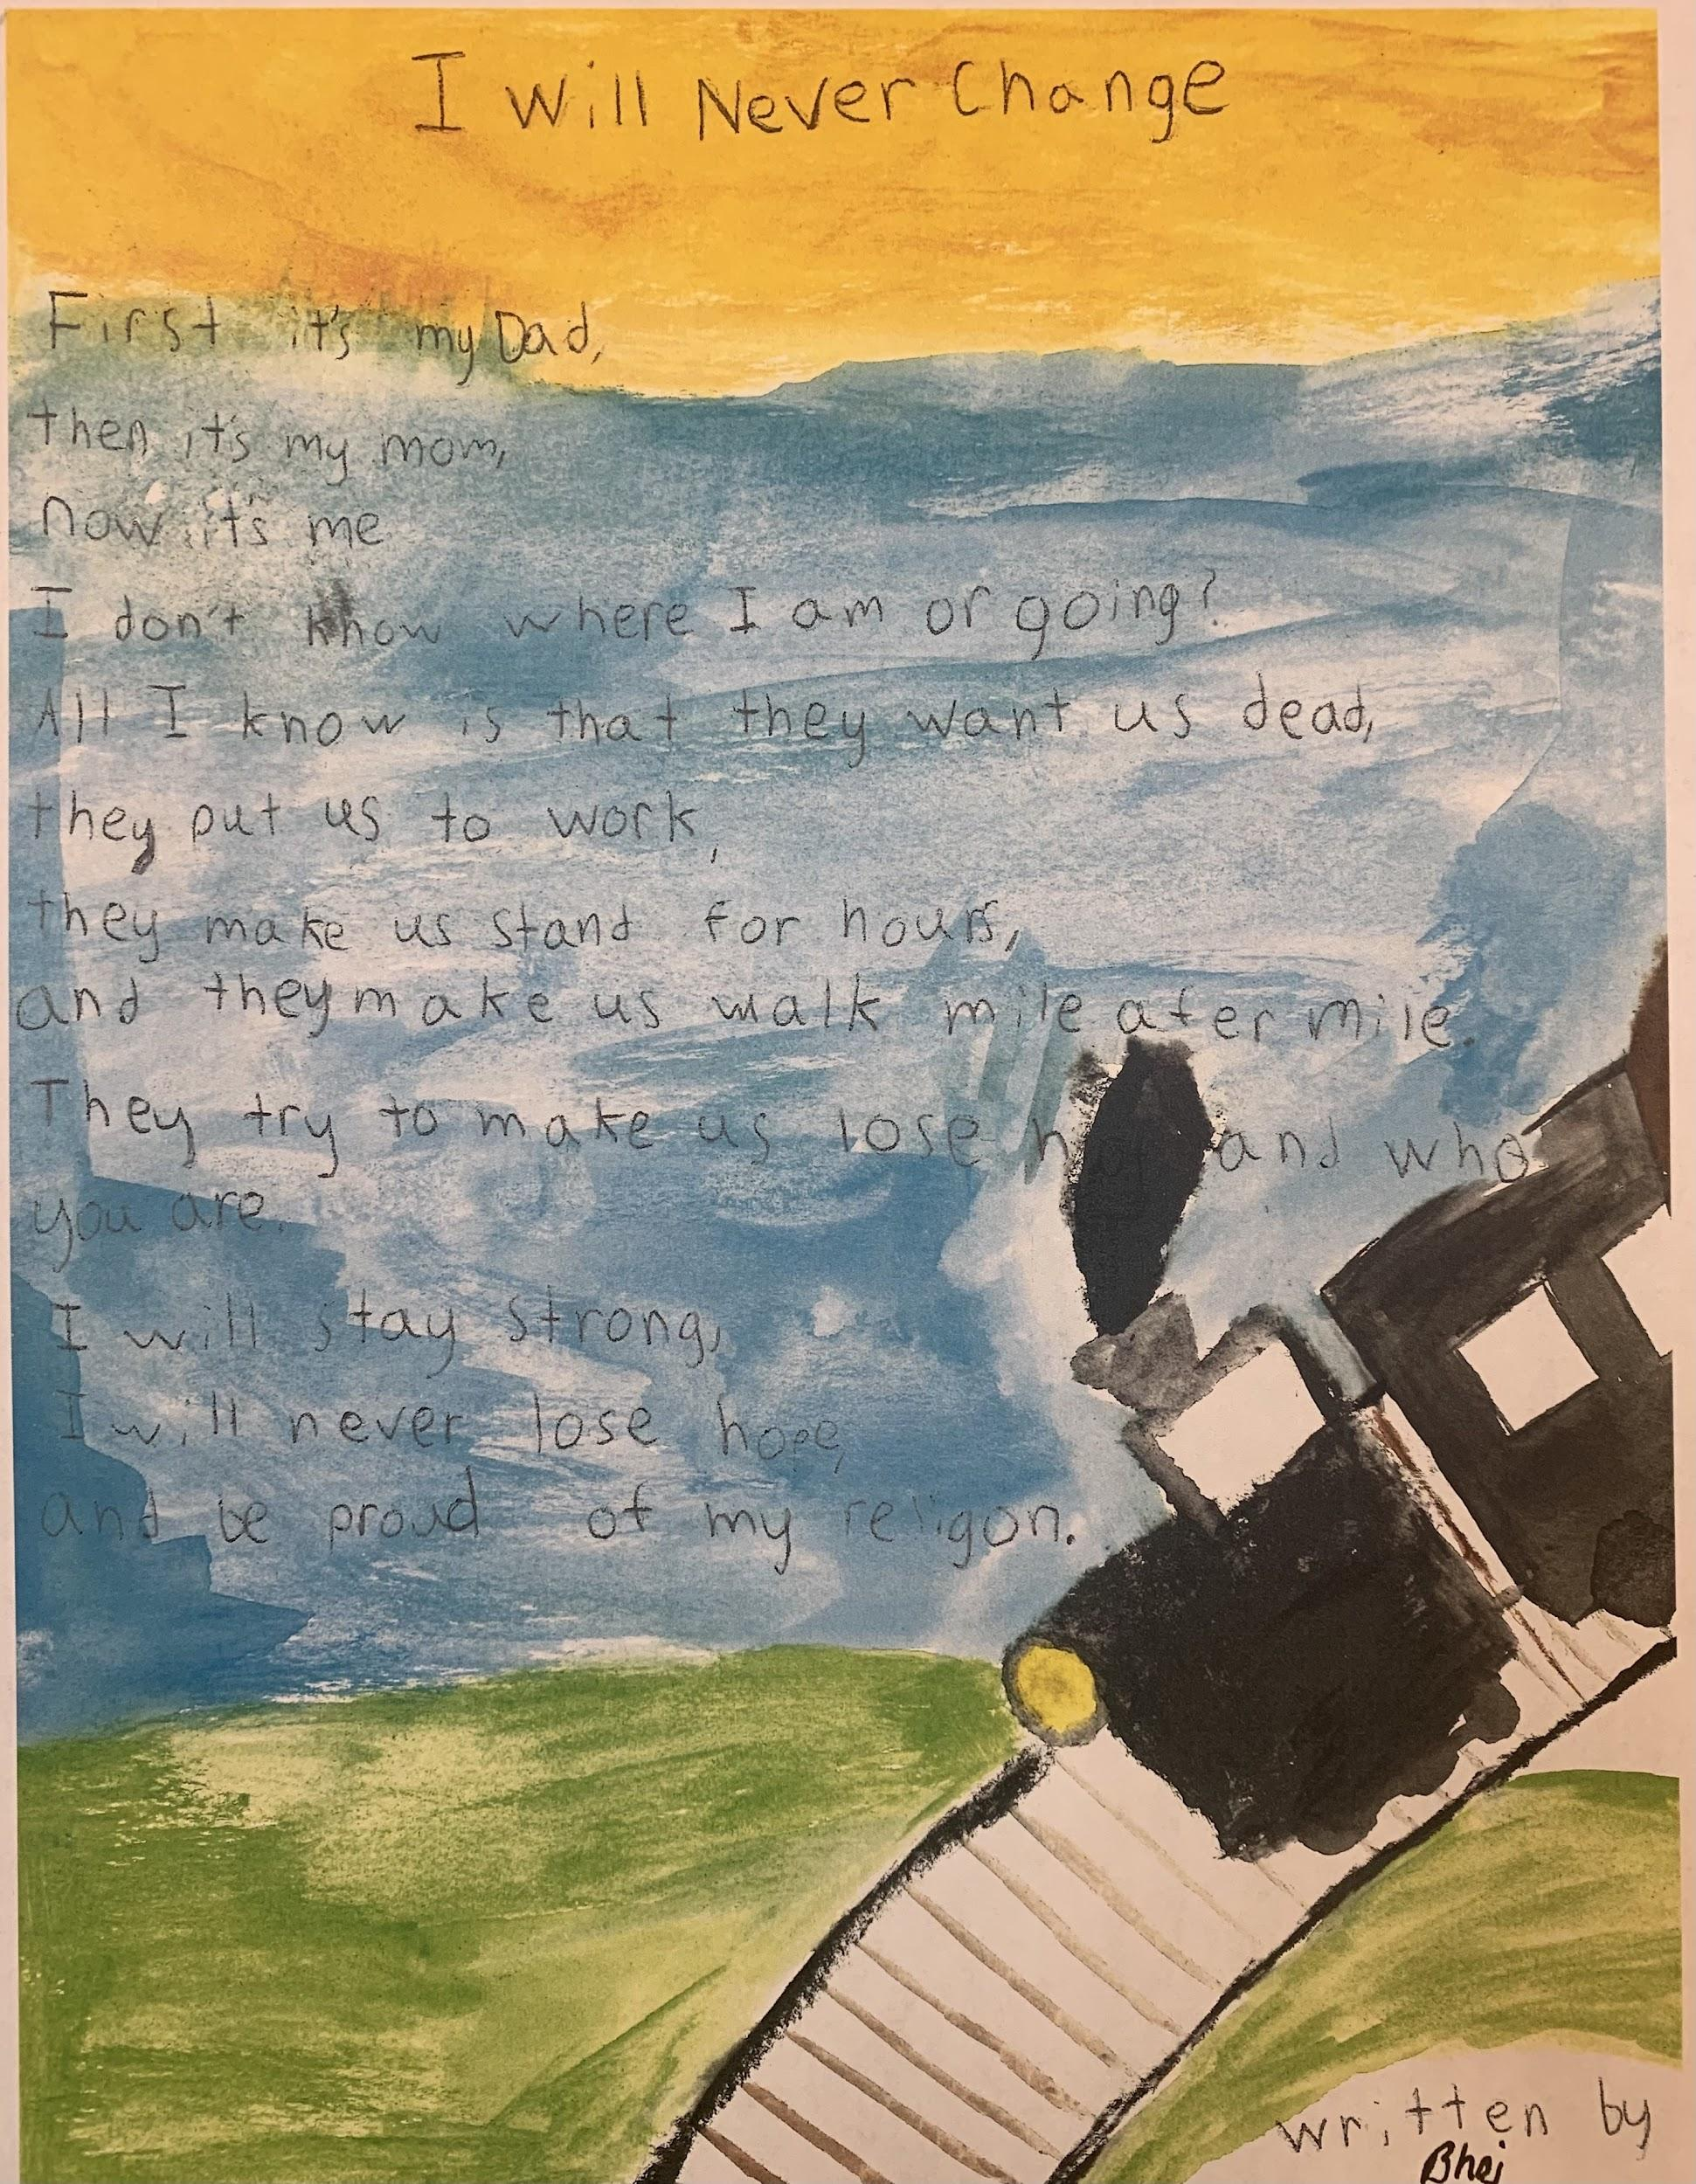 I Will Never Change
First it's my Dad,
then it's my mom,
now it's me
I don't know where I am or going?
All I know is that they want us dead,
they put us to work,
they make us stand for hours,
and they make us walk mile afer mile.
They try to make us lose and who
you are.
I will stay strong,
I will never lose hope,
and be proud of my religon.
written by
Bhej